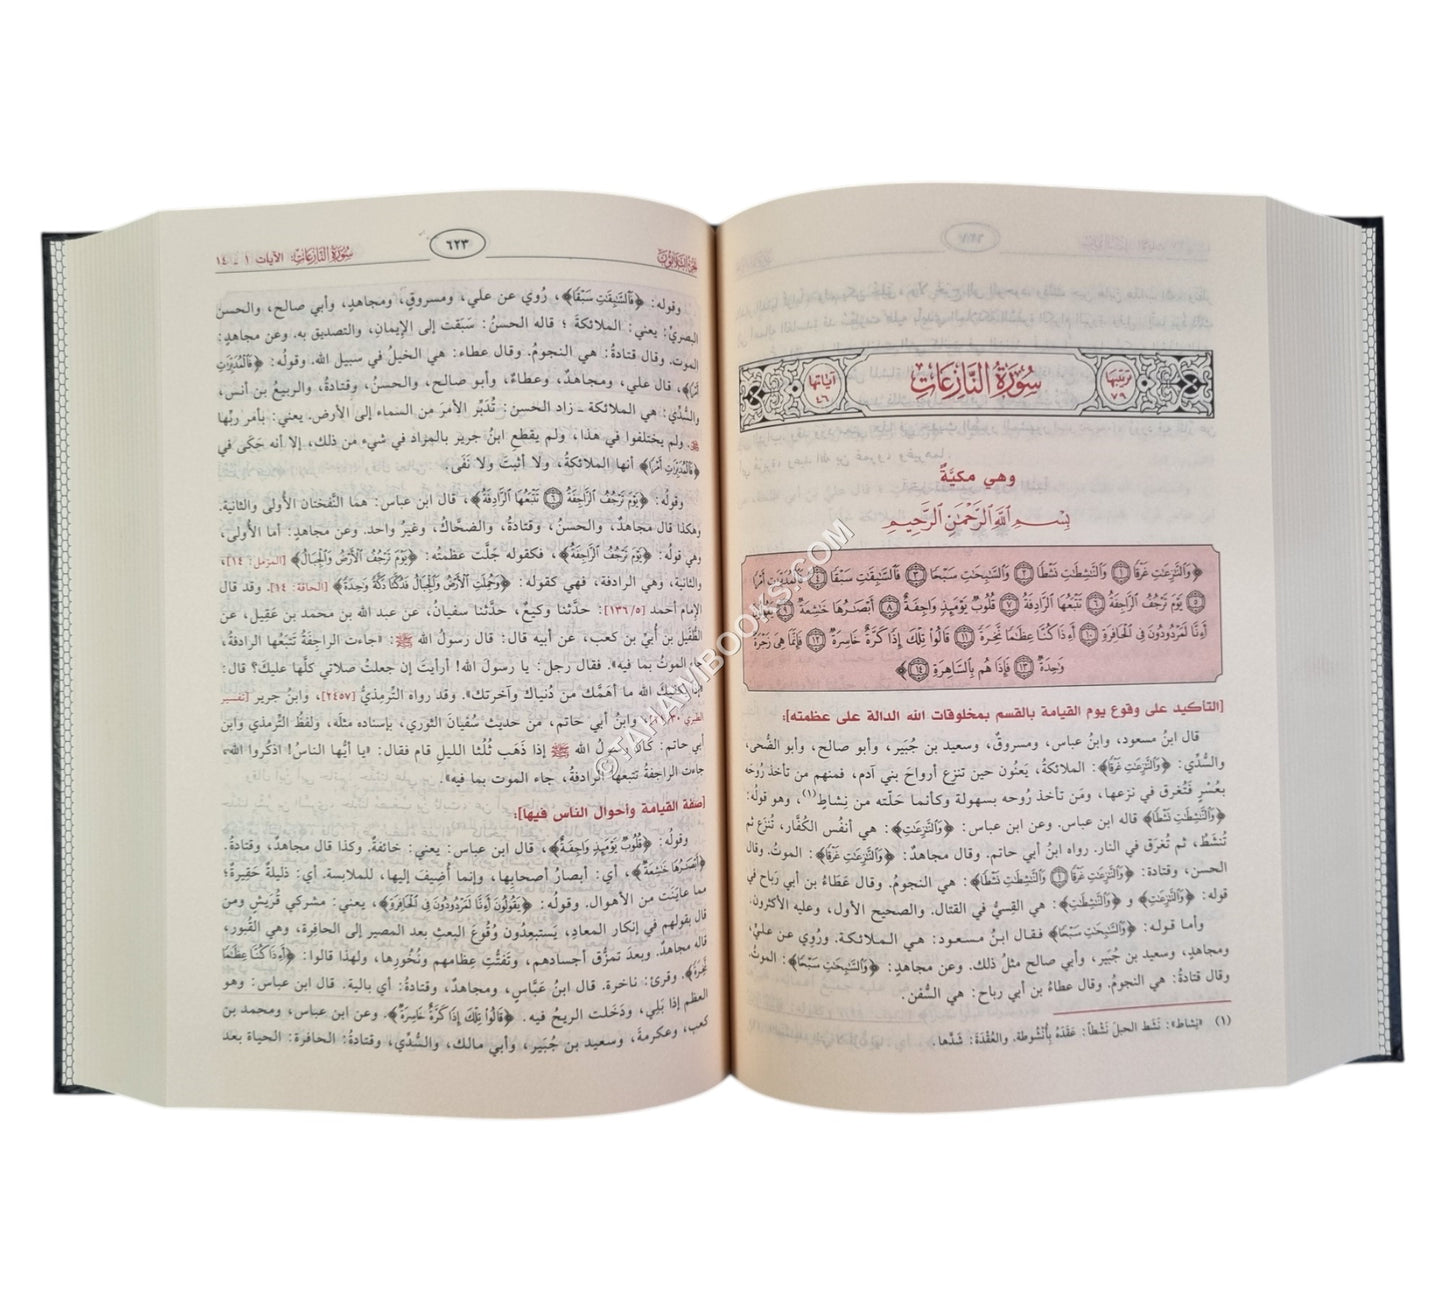 ترتيبها ٧٩
سُورَةُ النَّازِعَاتِ
آياتها ٤٦
وهي مكيَّةٌ
بِسْمِ اللَّهِ الرَّحْمَٰنِ الرَّحِيمِ
﴿وَٱلنَّٰزِعَٰتِ غَرْقًا ① وَٱلنَّٰشِطَٰتِ نَشْطًا ② وَٱلسَّٰبِحَٰتِ سَبْحًا ③ فَٱلسَّٰبِقَٰتِ سَبْقًا ④ فَٱلْمُدَبِّرَٰتِ أَمْرًا
⑤ يَوْمَ تَرْجُفُ ٱلرَّاجِفَةُ ⑥ تَتْبَعُهَا ٱلرَّادِفَةُ ⑦ قُلُوبٌ يَوْمَئِذٍ وَاجِفَةٌ ⑧ أَبْصَٰرُهَا خَٰشِعَةٌ ⑨ يَقُولُونَ
أَءِنَّا لَمَرْدُودُونَ فِي ٱلْحَافِرَةِ ⑩ أَءِذَا كُنَّا عِظَٰمًا نَّخِرَةً ⑪ قَالُوا تِلْكَ إِذًا كَرَّةٌ خَاسِرَةٌ ⑫ فَإِنَّمَا هِيَ زَجْرَةٌ
وَٰحِدَةٌ ⑬ فَإِذَا هُم بِٱلسَّاهِرَةِ ⑭﴾
[التأكيد على وقوع يوم القيامة بالقسم بمخلوقات الله الدالة على عظمته]:
قال ابنُ مسعود، وابنُ عباس، ومسروقٌ، وسعيد بن جُبَير، وأبو صالح، وأبو الضُّحى،
والسُّدِّي: ﴿وَٱلنَّٰزِعَٰتِ غَرْقًا﴾: الملائكةُ، يَعنُون حين تنزع أرواحَ بني آدم، فمنهم من تأخذ رُوحَه
بعُسْرٍ فتُغرق في نزعها، ومَن تأخذ رُوحه بسهولة وكأنما حَلَّته من نِشاطٍ(١)، وهو قولُه:
﴿وَٱلنَّٰشِطَٰتِ نَشْطًا﴾ قاله ابن عباس. وعن ابن عباس: ﴿وَٱلنَّٰزِعَٰتِ﴾: هي أنفُس الكُفَّار، تُنزَع ثم
تُنشَطُ، ثم تُغرَق في النار. رواه ابنُ أبي حاتم. وقال مجاهدٌ: ﴿وَٱلنَّٰزِعَٰتِ غَرْقًا﴾: الموتُ. وقال
الحسن، وقتادة: ﴿وَٱلنَّٰزِعَٰتِ غَرْقًا ① وَٱلنَّٰشِطَٰتِ نَشْطًا﴾: هي النجومُ. وقال عَطَاءُ بن أبي رَباح في
قوله: ﴿وَٱلنَّٰزِعَٰتِ﴾ و ﴿وَٱلنَّٰشِطَٰتِ﴾: هي القِسِيُّ في القتال. والصحيح الأول، وعليه الأكثرون.
وأما قوله: ﴿وَٱلسَّٰبِحَٰتِ سَبْحًا﴾ فقال ابنُ مسعود: هي الملائكة. ورُوي عن عليٍّ،
ومجاهدٍ، وسعيد بن جُبَير، وأبي صالح مثلُ ذلك. وعن مجاهدٍ: ﴿وَٱلسَّٰبِحَٰتِ سَبْحًا﴾: الموتُ.
وقال قتادةُ: هي النجومُ. وقال عطاءُ بن أبي رباح: هي السُّفن.
(١) «نِشاط»: نَشَط الحبلَ نَشْطاً: عَقَدَهُ بأُنْشُوطة. والعُقْدَةَ: شَدَّها.
الجُزْءُ الثَّلَاثُونَ
٦٢٣
سُورَةُ النَّازِعَاتِ: الآيات ١ - ١٤
وقوله: ﴿فَٱلسَّٰبِقَٰتِ سَبْقًا﴾، رُوي عن علي، ومسروقٍ، ومجاهدٍ، وأبي صالح، والحسن
البصريِّ: يعني: الملائكة؛ قاله الحسنُ: سَبَقت إلى الإيمانِ، والتصديق به. وعن مجاهدٍ:
الموت. وقال قتادةُ: هي النجومُ. وقال عطاء: هي الخيلُ في سبيل الله. وقولُه: ﴿فَٱلْمُدَبِّرَٰتِ
أَمْرًا﴾، قال علي، ومجاهدٌ، وعطاءٌ، وأبو صالح، والحسنُ، وقتادةُ، والربيعُ بن أنس،
والسُّدِّي: هي الملائكة ـ زاد الحسنُ: تُدَبِّر الأمرَ من السماء إلى الأرض. يعني: بأمر ربِّها
ﷻ. ولم يختلفوا في هذا، ولم يقطع ابنُ جرير بالمراد في شيء من ذلك، إلا أنه حَكَى في
﴿فَٱلْمُدَبِّرَٰتِ أَمْرًا﴾ أنها الملائكةُ، ولا أثبتَ ولا نَفَى.
وقولُه: ﴿يَوْمَ تَرْجُفُ ٱلرَّاجِفَةُ ⑥ تَتْبَعُهَا ٱلرَّادِفَةُ﴾، قال ابن عباس: هما النَّفختان الأُولى والثانية.
وهكذا قال مجاهدٌ، والحسنُ، وقتادةُ، والضحَّاكُ، وغيرُ واحد. وعن مجاهد: أما الأُولى،
وهي قولُه: ﴿يَوْمَ تَرْجُفُ ٱلرَّاجِفَةُ﴾، فكقوله جَلَّت عظمتُه: ﴿يَوْمَ تَرْجُفُ ٱلْأَرْضُ وَٱلْجِبَالُ﴾ [المزمل: ١٤]،
والثانية، وهي الرادفة، فهي كقوله: ﴿وَحُمِلَتِ ٱلْأَرْضُ وَٱلْجِبَالُ فَدُكَّتَا دَكَّةً وَٰحِدَةً﴾ [الحاقة: ١٤]. وقد قال
الإمام أحمد [١٣٦/٥]: حدَّثنا وكيعٌ، حدَّثنا سفيانُ، عن عبد الله بن محمد بن عَقِيل، عن
الطُّفَيل بن أُبيِّ بن كعب، عن أبيه قال: قال رسولُ الله ﷺ: «جاءت الراجفةُ تَتبَعُها الرادفةُ،
جاء الموتُ بما فيه». فقال رجل: يا رسولَ الله! أرأيتَ إن جعلتُ صلاتي كلَّها عليكَ؟ قال:
الله ما أهَمَّك من دُنياك وآخرتك». وقد رواه التِّرمذيُّ [٢٤٥٧]، وابنُ جرير [تفسير
الطبري ٣٠/]، وابنُ أبي حاتم، من حديث سُفيانَ الثوري، بإسناده مثلَه، ولفظُ التِّرمذي وابن
أبي حاتم: كان رسولُ الله ﷺ إذا ذَهَب ثُلُثا الليلِ قام فقال: «يا أيُّها الناسُ! اذكُروا اللهَ،
جاءت الراجفةُ تتبعُها الرادفةُ، جاء الموت بما فيه».
[صفة القيامة وأحوال الناس فيها]:
وقولُه: ﴿قُلُوبٌ يَوْمَئِذٍ وَاجِفَةٌ﴾، قال ابن عباس: يعني: خائفةٌ. وكذا قال مجاهدٌ، وقتادة.
﴿أَبْصَٰرُهَا خَٰشِعَةٌ﴾، أي: أبصارُ أصحابِها، وإنما أُضِيفَ إليها، للملابسة. أي: ذليلةٌ حَقِيرةٌ؛
مما عايَنَت من الأهوال. وقولُه: ﴿يَقُولُونَ أَءِنَّا لَمَرْدُودُونَ فِي ٱلْحَافِرَةِ﴾، يعني: مشركي قُريشٍ ومن
قال بقولهم في إنكار المعادِ، يَستبعِدُون وُقُوعَ البعثِ بعد المصير إلى الحافِرة، وهي القُبور،
قاله مجاهدٌ. وبعدَ تمزُّق أجسادهم، وتَفتُّتِ عِظامهم ونُخُورِها، ولهذا قالوا: ﴿أَءِذَا كُنَّا عِظَٰمًا
نَّخِرَةً﴾. وقرئ: ناخرة. قال ابنُ عبَّاسٍ، ومجاهدٌ، وقتادةُ: أي بالية. قال ابن عباس: وهو
العظم إذا بَلِي، ودَخَلت الريحُ فيه. ﴿قَالُوا تِلْكَ إِذًا كَرَّةٌ خَاسِرَةٌ﴾. وعن ابن عباس، ومحمد بن
كعب، وعكرمةَ، وسعيد بن جُبَير، وأبي مالك، والسُّدِّي، وقتادةُ: الحافرة: الحياة بعد
©TAHAMBOOKS.COM